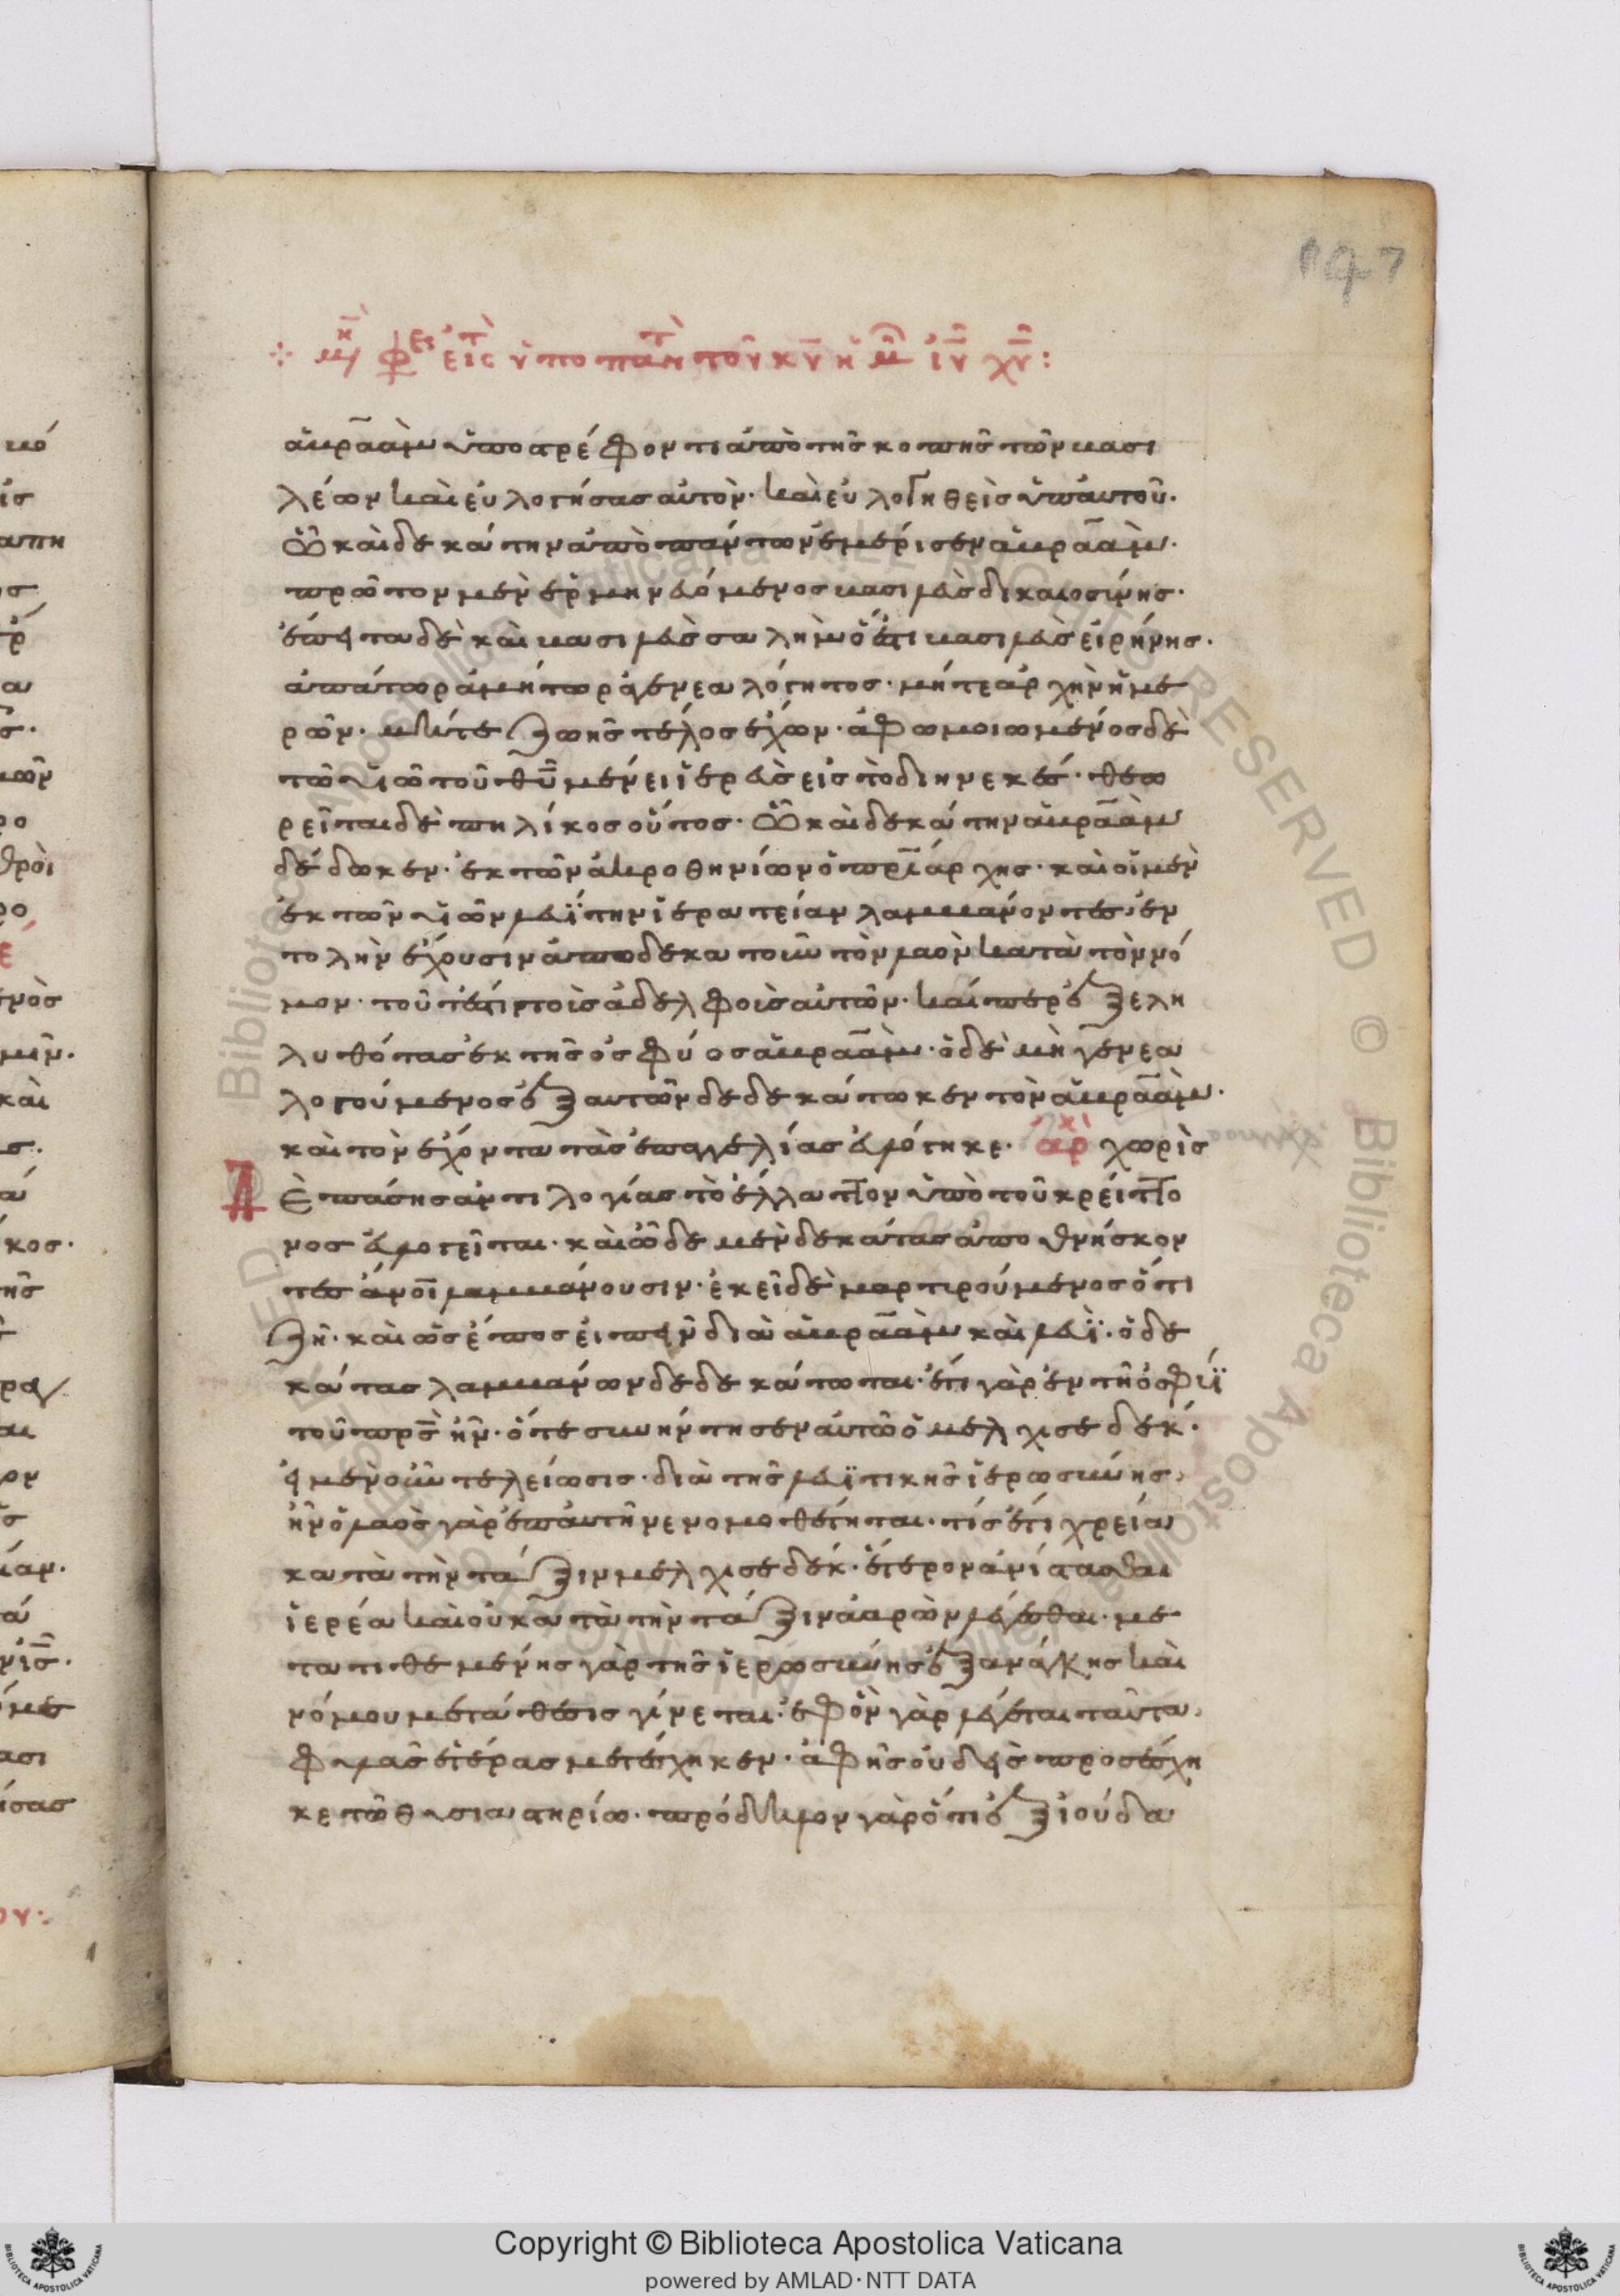 147
ἀβραὰμ ὑποστρέφοντι ἀπὸ τῆς κοπῆς τῶν βασι
λέων καὶ εὐλογήσας αὐτὸν· καὶ εὐλογηθεὶς ὑπ' αὐτοῦ·
ὧ καὶ δεκάτην ἀπὸ πάντων ἐμέρισεν ἀβραάμ·
πρῶτον μὲν ἑρμηνευόμενος βασιλεὺς δικαιοσύνης·
ἔπειτα δὲ καὶ βασιλεὺς σαλὴμ ὅ ἐστι βασιλεὺς εἰρήνης·
ἀπάτωρ ἀμήτωρ ἀγενεαλόγητος· μήτε ἀρχὴν ἡμε
ρῶν· μήτε ζωῆς τέλος ἔχων· ἀφωμοιωμένος δὲ
τῶ υἱῶ τοῦ θῦ μένει ἱερεὺς εἰς τὸ διηνεκές· θεω
ρεῖται δὲ πηλίκος οὗτος· ὧ καὶ δεκάτην ἀβραὰμ
δέδωκεν· ἐκ τῶν ἀκροθηνίων ὁ πριάρχης· καὶ οἱ μὲν
ἐκ τῶν υἱῶν λευὶ τὴν ἱερατείαν λαμβάνοντες, ἐν
τολὴν ἔχουσιν ἀποδεκατοῦν τὸν λαὸν κατὰ τὸν νό
μον· τοῦτέστι τοῖς ἀδελφοῖς αὐτῶν· καίπερ ἐξελη
λυθότας ἐκ τῆς ὀσφύος ἀβραάμ· ὁ δὲ μὴ γενεα
λογούμενος ἐξ αὐτῶν δεδεκάτωκεν τὸν ἀβραάμ·
καὶ τὸν ἔχοντα τὰς ἐπαγγελίας εὐλόγηκε· ἀρχ χωρὶς
Ὲ πάσης ἀντιλογίας τὸ ἔλλαττον ὑπὸ τοῦ κρείττο
νος εὐλογεῖται· καὶ ὧδε μὲν δεκάτας ἀποθνήσκον
τες ἄνοι λαμβάνουσιν· ἐκεῖ δὲ μαρτιρούμενος ὅτι
ζῆ· καὶ ὡς ἔπος εἰπεῖν διὰ ἀβραὰμ καὶ λευΐ· ὁ δε
κάτας λαμβάνων δεδεκάτωται· ἔτι γὰρ ἐν τῆ ὀσφύϊ
τοῦ πρς ἦν· ὅτε συνήντησεν αὐτῶ ὁ μελχισεδέκ·
εἰ μὲν οὖν τελείωσις· διὰ τῆς λευϊτικῆς ἱερωσύνης,
ἦν ὁ λαὸς γὰρ ἐπ' αὐτῆ νενομοθέτηται· τίς ἔτι χρεία
κατὰ τὴν τάξιν μελχισεδέκ· ἕτερον ἀνίστασθαι
ἱερέα καὶ οὐ κατὰ τὴν τάξιν ἀαρὼν λέγεσθαι· με
τατιθεμένης γὰρ τῆς ἱερωσύνης ἐξ ἀνάγκης καὶ
νόμου μετάθεσις γίνεται· ἐφ' ὃν γὰρ λέγεται ταῦτα,
φυλῆς ἑτέρας μετέσχηκεν· ἀφ' ἧς οὐδεὶς προσέσχη
κε τῶ θυσιαστηρίω· πρόδηλον γὰρ ὅτι ἐξ ἰούδα
Copyright © Biblioteca Apostolica Vaticana
powered by AMLAD·NTT DATA